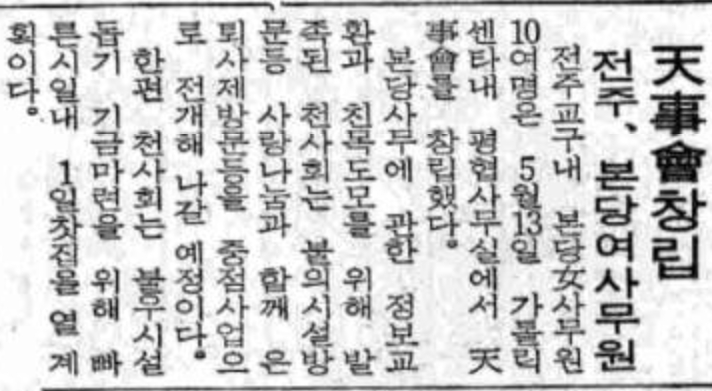 天事會창립
전주、본당여사무원
전주교구내 본당女사무원
10여명은 5월13일 가톨릭
센타내 평협사무실에서 天
事會를 창립했다。
본당사무에 관한 정보교
환과 친목도모를 위해 발
족된 천사회는 불의시설방
문등 사랑나눔과 함께 은
퇴사제방문등을 중점사업으
로 전개해 나갈 예정이다。
한편 천사회는 불우시설
돕기 기금마련을 위해 빠
른시일내 1일찻집을 열 계
획이다。